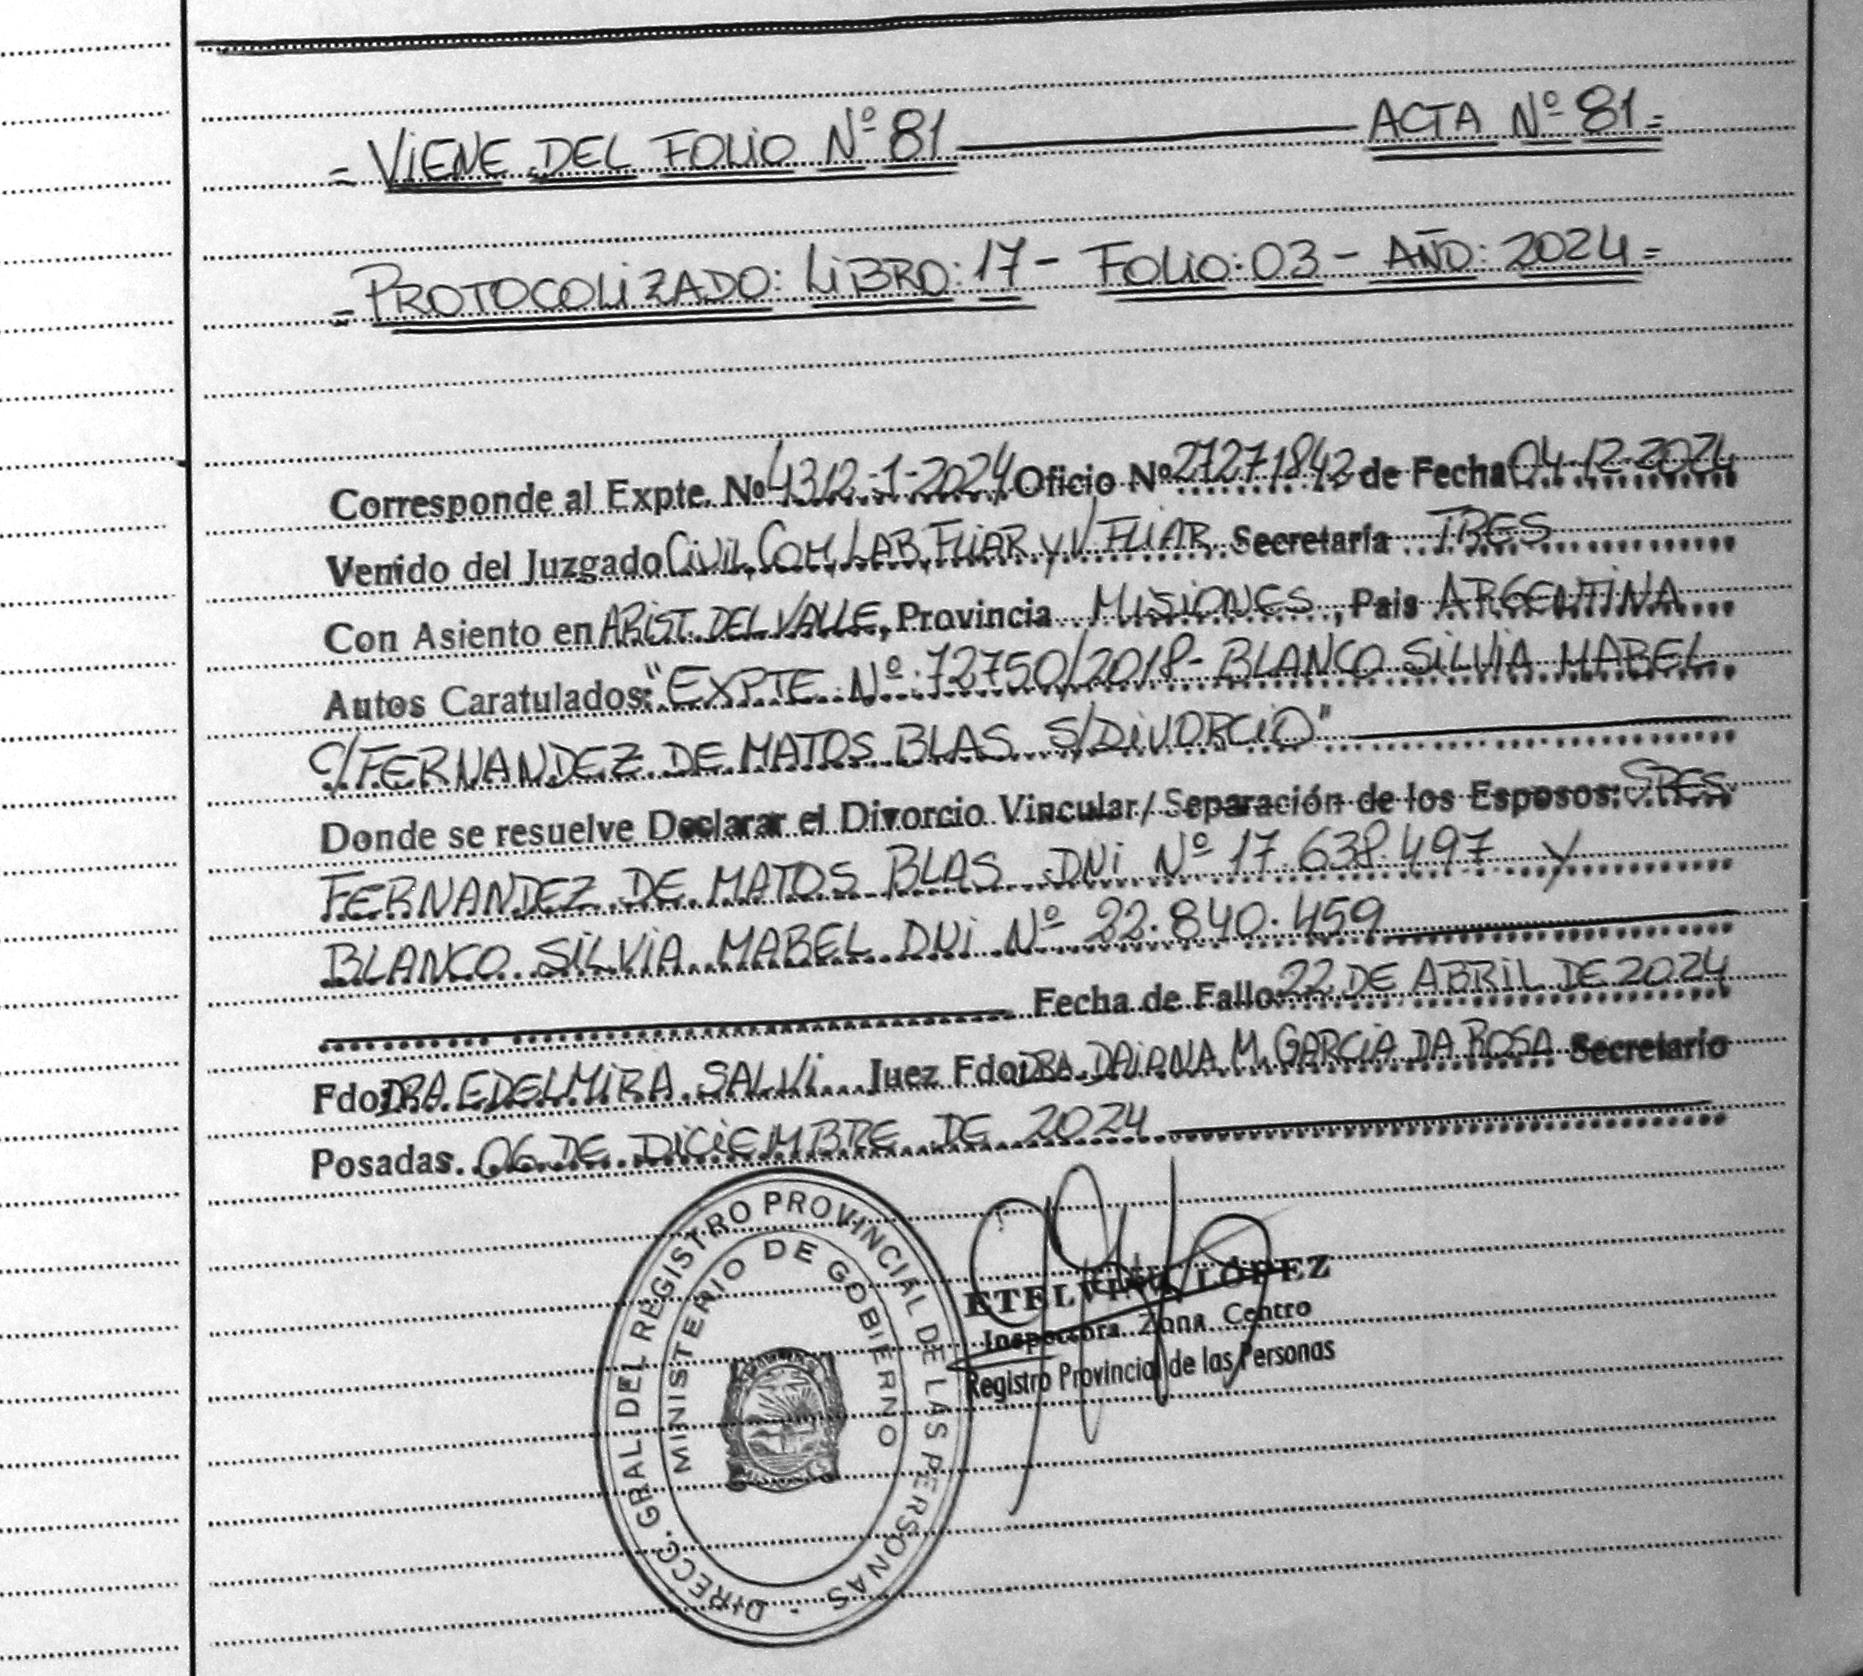 = VIENE DEL FOLIO Nº 81 ACTA Nº 81 =
= PROTOCOLIZADO: LIBRO: 17 - FOLIO: 03 - AÑO: 2024 =
Corresponde al Expte. Nº 4312-1-2024 Oficio Nº 27271842 de Fecha 04-12-2024
Venido del Juzgado CIVIL, COM, LAB, FLIAR Y V. FLIAR. Secretaría TRES
Con Asiento en ARIST. DEL VALLE, Provincia MISIONES, Pais ARGENTINA
Autos Caratulados: "EXPTE Nº: 72750/2018 - BLANCO SILVIA MABEL
C/ FERNANDEZ DE MATOS BLAS S/ DIVORCIO"
Donde se resuelve Declarar el Divorcio Vincular / Separación de los Esposos: SRES
FERNANDEZ DE MATOS BLAS DNI Nº 17.638.497 Y
BLANCO SILVIA MABEL DNI Nº 22.840.459
Fecha de Fallo: 22 DE ABRIL DE 2024
Fdo: DRA. EDELMIRA SALVI Juez Fdo: DRA. DAIANA M. GARCIA DA ROSA Secretario
Posadas. 06 DE DICIEMBRE DE 2024
DIRECC. GRAL. DEL REGISTRO PROVINCIAL DE LAS PERSONAS
MINISTERIO DE GOBIERNO
ETELVINA LÓPEZ
Inspectora Zona Centro
Registro Provincial de las Personas